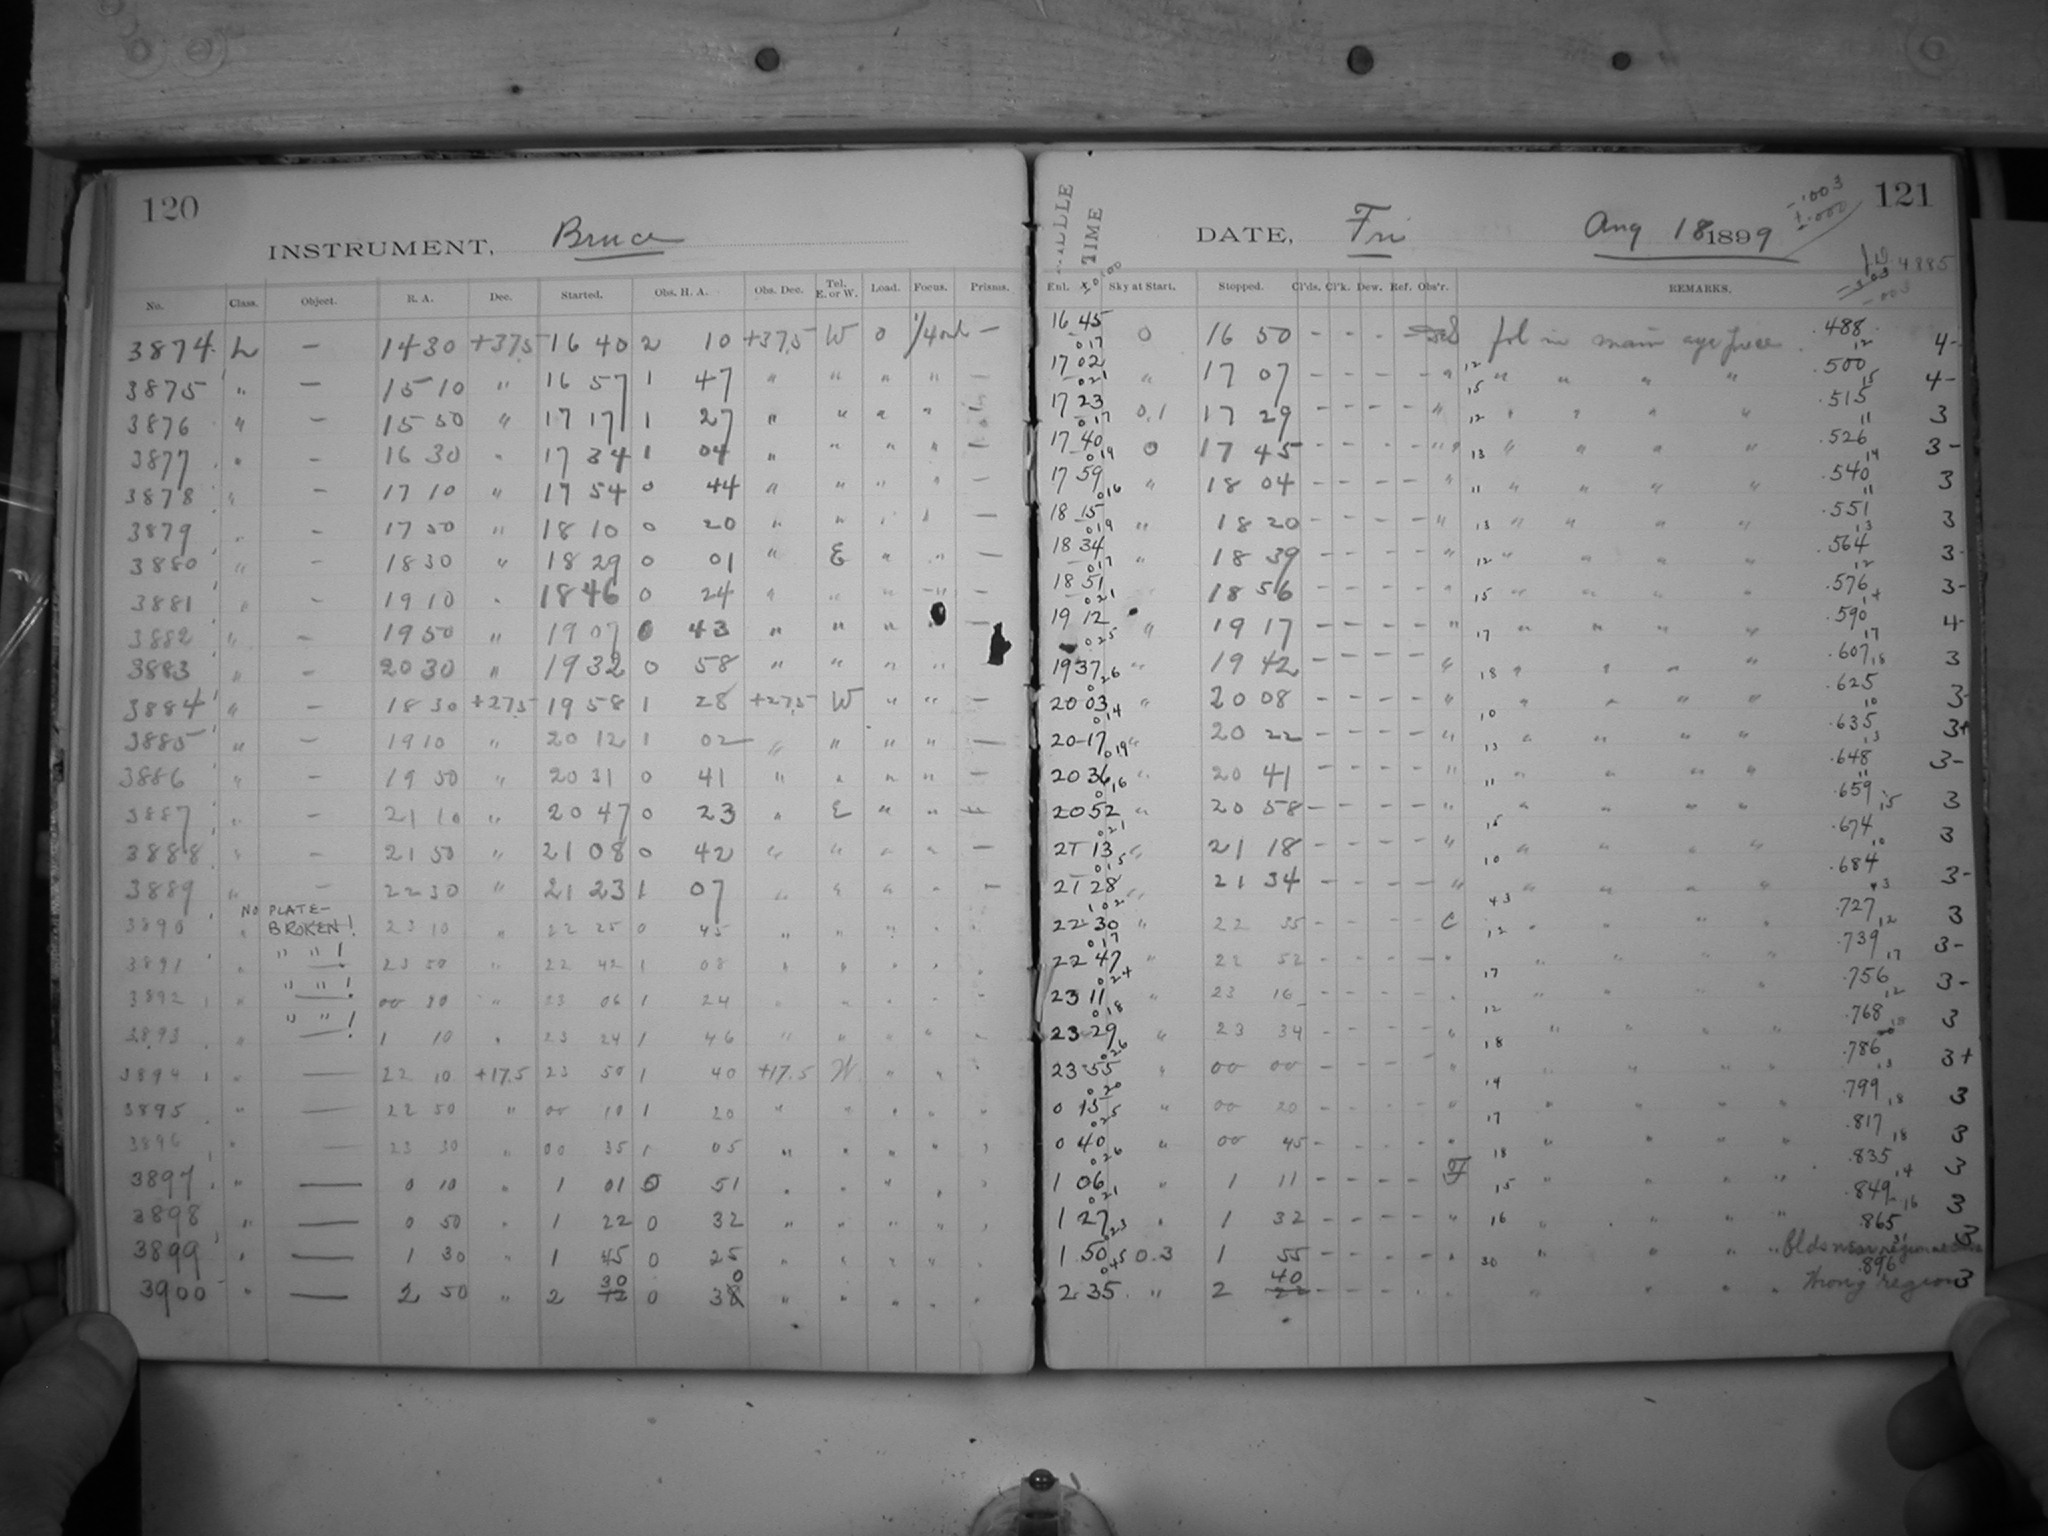 120
INSTRUMENT, Bruce
No. Class. Object. R. A. Dec. Started. Obs. H. A. Obs. Dec. Tel. E. or W. Load. Focus. Prisms.
3874 L — 14 30 +37.5 16 40 2 10 +37.5 W 0 1/4 out —
3875 " — 15 10 " 16 57 1 47 " " " " —
3876 " — 15 50 " 17 17 1 27 " " " " —
3877 " — 16 30 " 17 34 1 04 " " " " —
3878 " — 17 10 " 17 54 0 44 " " " " —
3879 " — 17 50 " 18 10 0 20 " " " " —
3880 " — 18 30 " 18 29 0 01 " E " " —
3881 " — 19 10 " 18 46 0 24 " " " " —
3882 " — 19 50 " 19 07 0 43 " " " " —
3883 " — 20 30 " 19 32 0 58 " " " "
3884 " — 18 30 +27.5 19 58 1 28 +27.5 W " " —
3885 " — 19 10 " 20 12 1 02 " " " " —
3886 " — 19 50 " 20 31 0 41 " " " " —
3887 " — 21 10 " 20 47 0 23 " E " " —
3888 " — 21 50 " 21 08 0 42 " " " " —
3889 " — 22 30 " 21 23 1 07 " " " " —
NO PLATE—
3890 " BROKEN! 23 10 " 22 25 0 45 " " " " "
3891 " " " ! 23 50 " 22 42 1 08 " " " " "
3892 " " " ! 00 30 " 23 06 1 24 " " " " "
3893 " " " ! 1 10 " 23 24 1 46 " " " " "
3894 " — 22 10 +17.5 23 50 1 40 +17.5 W " " "
3895 " — 22 50 " 00 10 1 20 " " " " "
3896 " — 23 30 " 00 35 1 05 " " " " "
3897 " — 0 10 " 1 01 0 51 " " " " "
3898 " — 0 50 " 1 22 0 32 " " " " "
3899 " — 1 30 " 1 45 0 25 " " " " "
3900 " — 2 50 " 2 30 0 30 " " " " "
TIME
-.003
+.000
121
DATE, Fri Aug 18 1899
4885
Ent. Sky at Start. Stopped. Cl'ds. Cl'k. Dew. Ref. Obs'r. REMARKS.
16 45 0 16 50 – – – fol in main eye piece .488 4-
17 02 " 17 07 – – – – " " " " " .500 4-
17 23 0.1 17 29 – – – – " " " " " .515 3
17 40 0 17 45 – – – – " " " " " .526 3-
17 59 " 18 04 – – – – " " " " " .540 3
18 15 " 18 20 – – – – " " " " " .551 3
18 34 " 18 39 – – – – " " " " " .564 3-
18 51 18 56 – – – – " " " " " .576 3-
19 12 " 19 17 – – – – " " " " " .590 4-
19 37 " 19 42 – – – – " " " " " .607 3
20 03 " 20 08 – – – – " " " " " .625 3-
20 17 " 20 22 – – – – " " " " " .635 3+
20 36 " 20 41 – – – – " " " " " .648 3-
20 52 " 20 58 – – – – " " " " " .659 3
21 13 " 21 18 – – – – " " " " " .674 3
21 28 " 21 34 – – – – " " " " " .684 3-
22 30 " 22 35 – – – – C " " " " .727 3
22 47 " 22 52 – – – – " " " " " .739 3-
23 11 " 23 16 – – – – " " " " " .756 3-
23 29 " 23 34 – – – – " " " " " .768 3
23 55 " 00 00 – – – – " " " " " .786 3+
0 15 " 00 20 – – – – " " " " " .799 3
0 40 " 00 45 – – – – " " " " " .817 3
1 06 1 11 – – – – F " " " " .835 3
1 27 " 1 32 – – – – " " " " " .849 3
1 50 0.3 1 55 – – – – " " " " .865 3
2 35 " 2 40 – – – – " " " " " .896 Wrong region 3